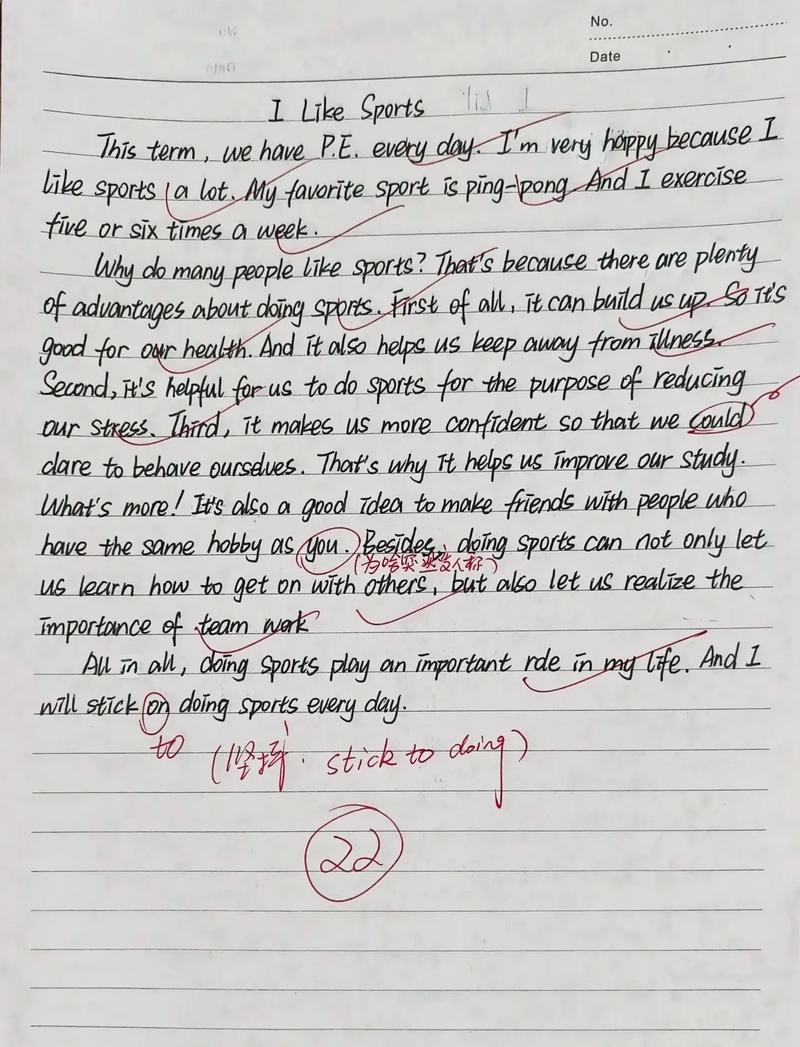 No.
Date
I Like Sports
This term, we have P.E. every day. I'm very happy because I
like sports a lot. My favorite sport is ping-pong. And I exercise
five or six times a week.
Why do many people like sports? That's because there are plenty
of advantages about doing sports. First of all, it can build us up. So it's
good for our health. And it also helps us keep away from illness.
Second, it's helpful for us to do sports for the purpose of reducing
our stress. Third, it makes us more confident so that we could
dare to behave ourselves. That's why it helps us improve our study.
What's more! It's also a good idea to make friends with people who
have the same hobby as you. Besides, doing sports can not only let
(为啥突然变人称)
us learn how to get on with others, but also let us realize the
importance of team work
All in all, doing sports play an important role in my life. And I
will stick on doing sports every day.
to
(坚持. stick to doing)
22